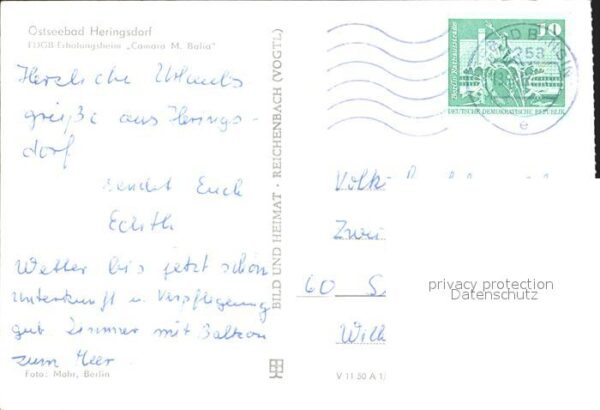 Ostseebad Heringsdorf
FDGB-Erholungsheim „Comara M. Balia"
Herzliche Urlaubs
grüße aus Herings-
dorf
sendet Euch
Edith
Wetter bis jetzt schön
Unterkunft u. Verpflegung
gut Zimmer mit Balkon
zum Meer.
Foto: Mohr, Berlin
BILD UND HEIMAT · REICHENBACH (VOGTL)
10
Berlin, Rathausstraße
DEUTSCHE DEMOKRATISCHE REPUBLIK
e
Volk
Zwei
60 S
Wilh
privacy protection
Datenschutz
V 11 50 A 1/